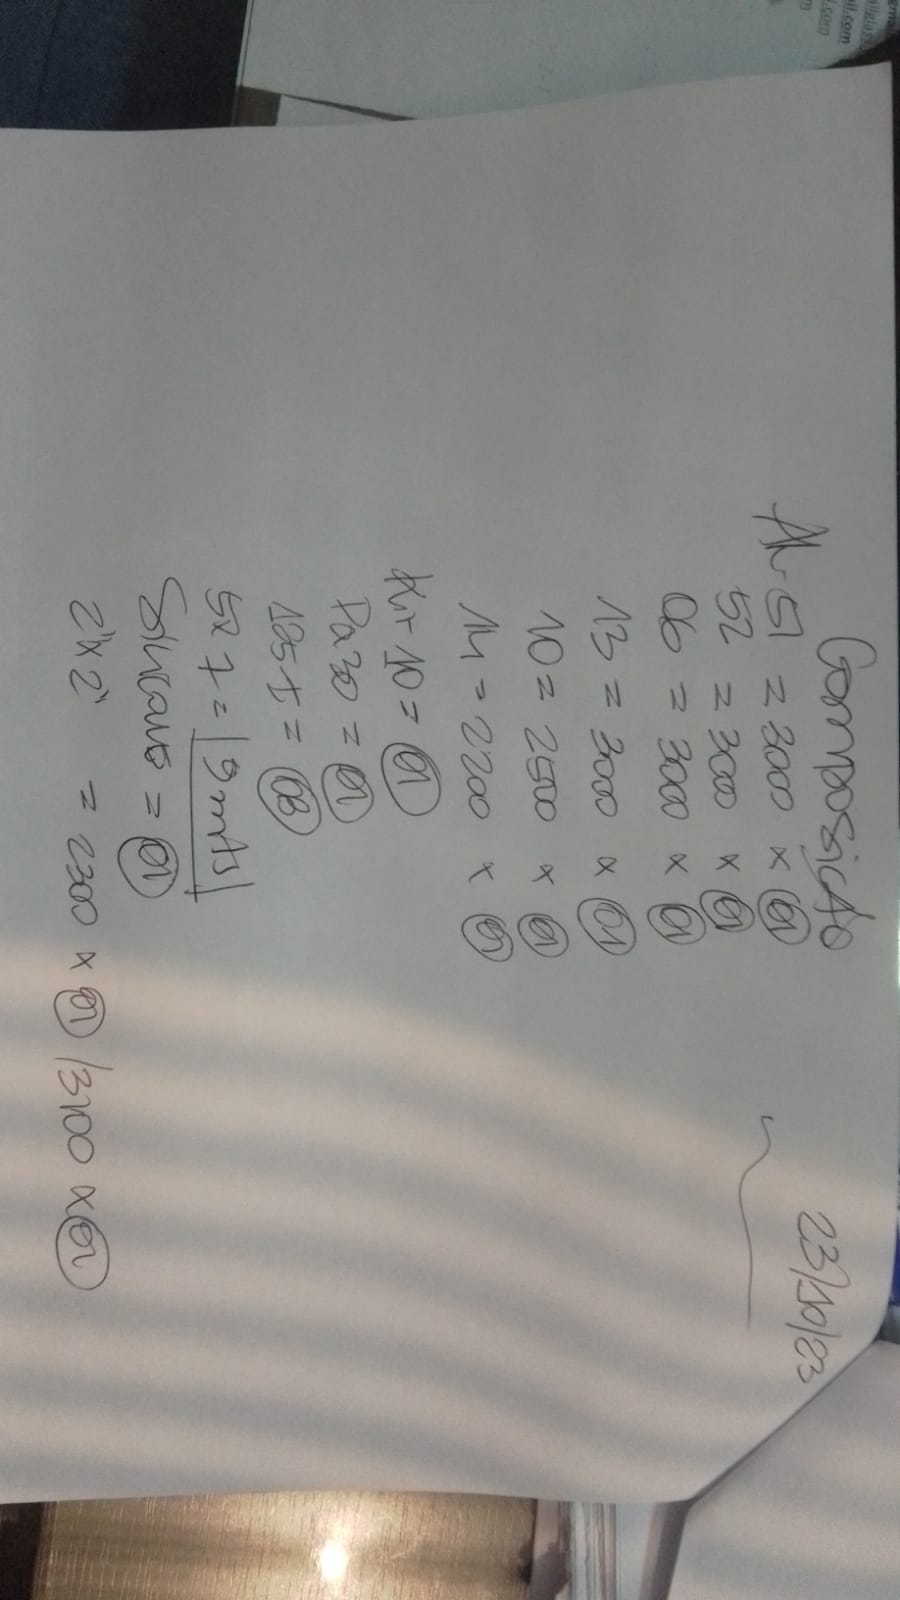 Composição
23/10/23
AL-51 = 3000 x 01
52 = 3000 x 01
06 = 3000 x 01
13 = 3000 x 01
10 = 2500 x 01
14 = 2200 x 01
Kit 10 = 01
Pa30 = 01
185 I = 08
527 = 9 mts
Silicone = 01
2"x2" = 2300 x 01 / 3100 x 01
il.com
l.com
m